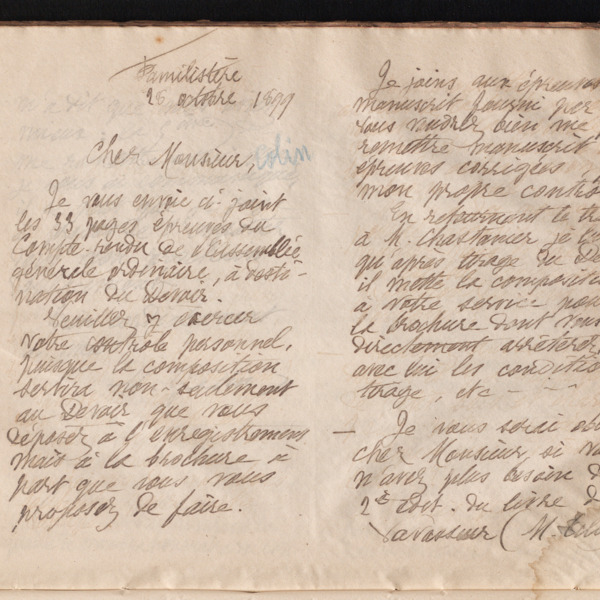 Familistère
28 octobre 1899
Cher Monsieur, Colin
Je vous envoie ci-joint
les 33 pages épreuves du
Compte-rendu de l'Assemblée
générale ordinaire, à desti-
nation du Devoir.
Veuillez y exercer
votre contrôle personnel,
puisque la composition
servira non-seulement
au Devoir que vous
déposez à l'enregistrement
mais à la brochure à
part que vous vous
proposez de faire.
Je joins aux épreuves
manuscrit fourni par
vous voudrez bien me
remettre manuscrit
épreuves corrigées,
mon propre contrô
En retournant le tra
à M. Chastanier je l'
qu'après tirage du De
il mette la composit
à votre service pour
la brochure dont vous
directement arrêterez
avec lui les conditio
tirage, etc - - -
— Je vous serai obl
cher Monsieur, si vo
n'avez plus besoin d
2e édit. du livre d
Vavasseur (M.